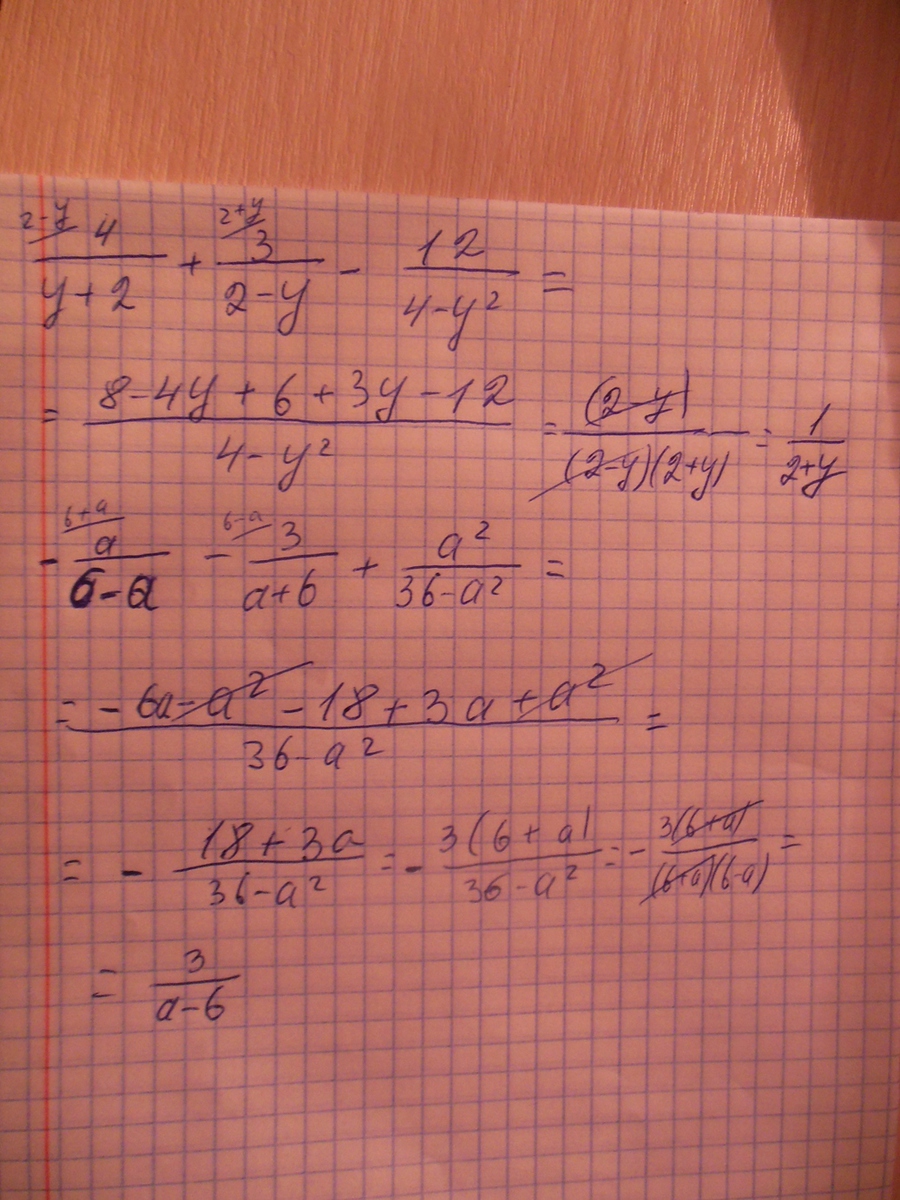 2-y 4/(y+2) + 2+y 3/(2-y) - 12/(4-y²) =
= (8-4y+6+3y-12)/(4-y²) = (2-y)/((2-y)(2+y)) = 1/(2+y)
- 6+a a/(6-a) - 6-a 3/(a+6) + a²/(36-a²) =
= (-6a-a²-18+3a+a²)/(36-a²) =
= - (18+3a)/(36-a²) = - 3(6+a)/(36-a²) = - 3(6+a)/((6+a)(6-a)) =
= 3/(a-6)